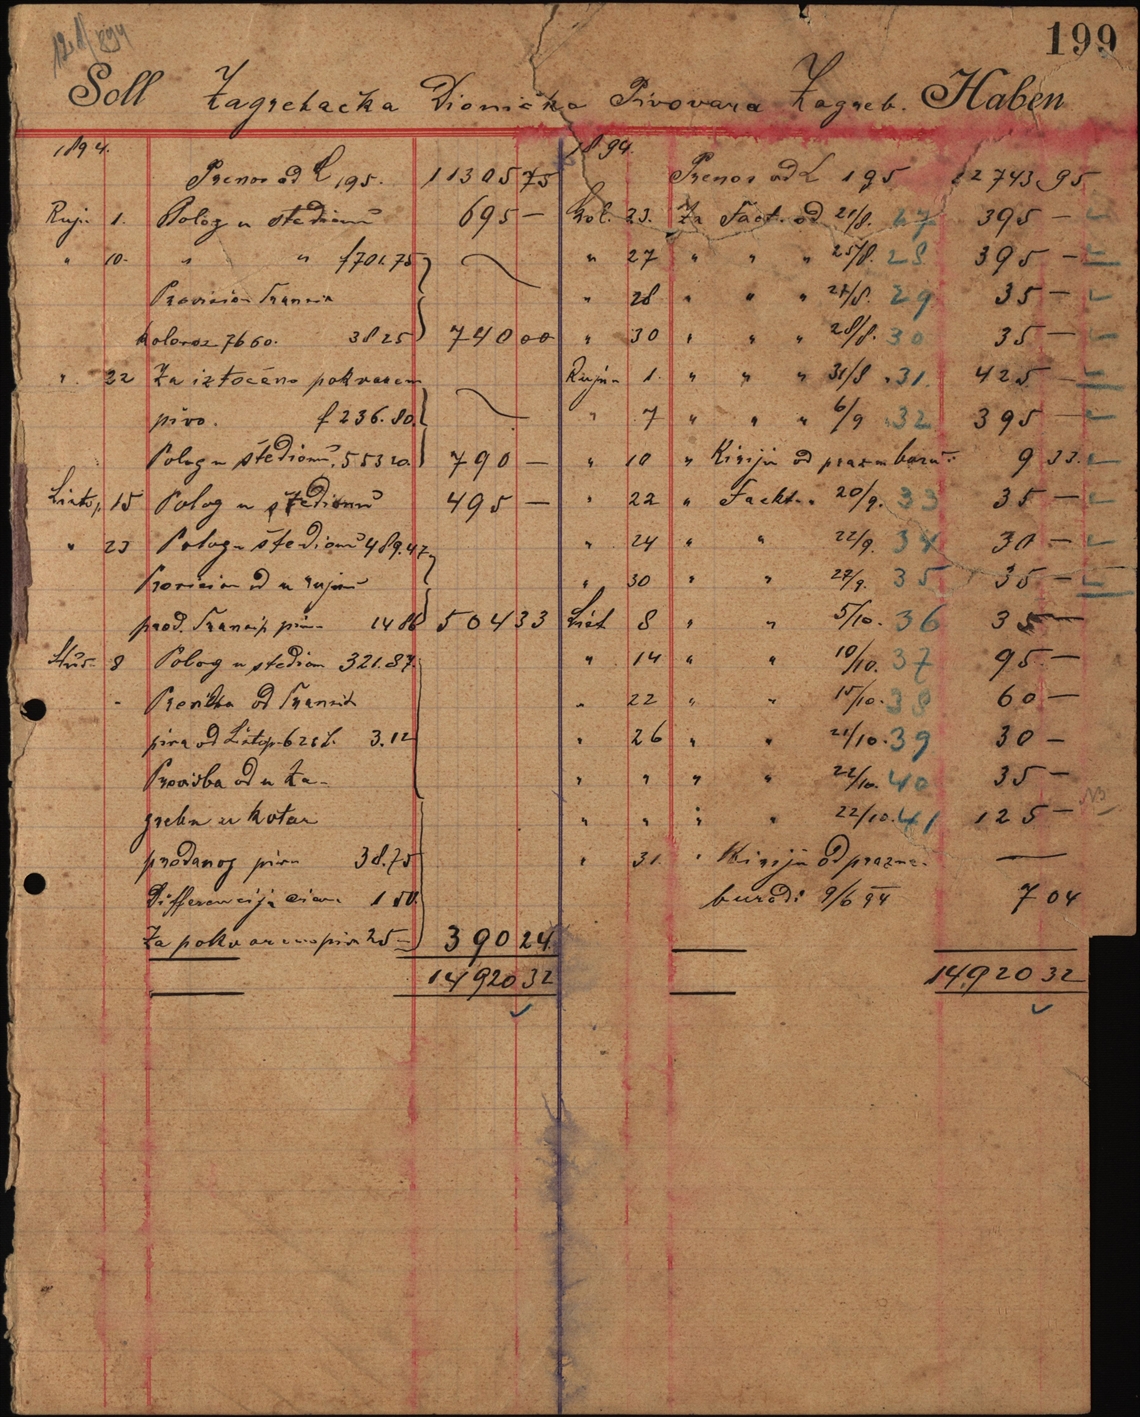 199
Soll Zagrebačka Dionička Pivovara Zagreb. Haben
1894.
Prenos od L 195. 11305 75
Ruj. 1. Polog u štedionu 695 —
" 10. " " f 701.75
Provizion Transit
kolovoz 7660. 38 25 740 00
" 22 Za iztočeno pokvareno
pivo. f 236.80
Polog u štedionu 553 20 790 —
Listop. 15 Polog u štedionu 495 —
" 23 Polog u štedionu 489.47
Provizion od u rujnu
prod. Transit pivo 14 86 504 33
Stud. 8 Polog u štedion 321.87
" Provizba od Transit
piva od Listop. 3.12
Provizba od u Za-
grebu u kotar
prodanog piva 38.75
Differencija 1 50
Za pokvareno pivo 25 — 390 24
14920 32
1894.
Prenos od L 195 12743 95
Kol. 23. Za Fact. od 21/8. 27 395 —
" 27 " " " 25/8. 28 395 —
" 28 " " " 27/8. 29 35 —
" 30 " " " 28/8. 30 35 —
Rujn 1. " " " 31/8 31. 425 —
" 7 " " " 6/9 32 395 —
" 10 " Kiriju od praznu 9 33
" 22 " Fackt. 20/9. 33 35 —
" 24 " " 22/9. 34 30 —
" 30 " " 27/9. 35 35 —
List 8 " " 5/10. 36 35 —
" 14 " " 10/10. 37 95 —
" 22 " " 15/10. 38 60 —
" 26 " " 21/10. 39 30 —
" " " " 22/10. 40 35 —
" " " " 22/10. 41 125 —
" 31. " Kiriju od prazne
buradi 9/6 94 7 04
14920 32